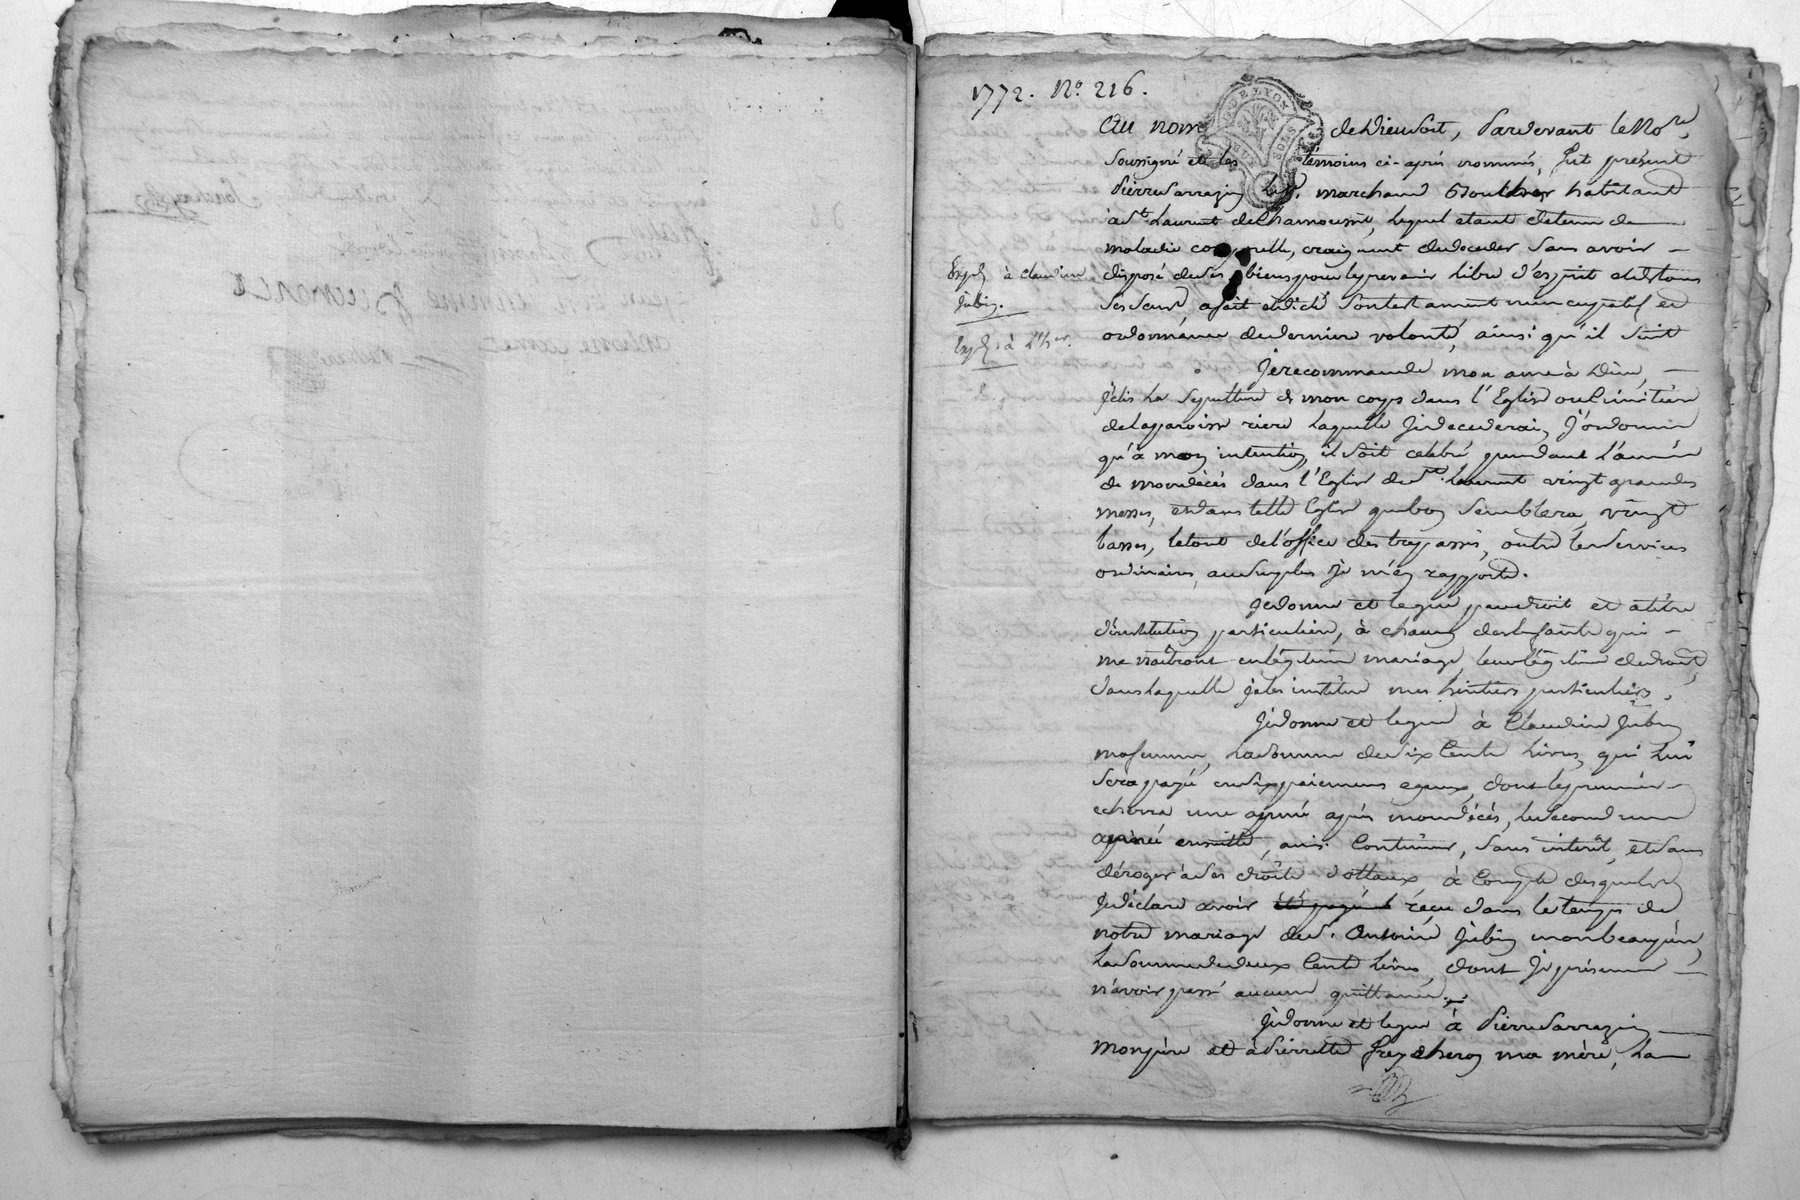 1772. N.º 216.
DE LYON
DEUX SOLS
Au nom de Dieu soit, Pardevant le No.re
soussigné et les témoins ci-après nommés, fut présent
Pierre Sarrazin le j.e marchand Boucher habitant
à S.t Laurent de Chamousset, lequel etant detenu de
maladie corporelle, craignant de deceder sans avoir
disposé de ses biens pour le prevenir libre d'esprit et de tous
ses sens, a fait et dicté son testament nuncupatif et
ordonnance de derniere volonté, ainsi qu'il suit
Exp.é à Claudine
Jubin.
Exp.é à l'h.er.
Je recommande mon ame à Dieu,
j'élis la sepulture de mon corps dans l'Eglise ou Cimetiere
de la paroisse riere laquelle je decederai, j'ordonne
qu'à mon intention, il soit celebré pendant l'année
de mon décès dans l'Eglise de S.t Laurent vingt grandes
messes, et dans telle Eglise que bon semblera, vingt
basses, le tout de l'office des trepassés, outre les services
ordinaires, au surplus je m'en rapporte.
Je donne et legue par droit et à titre
d'institution particuliere, à chacun des enfants qui
me naîtront en légitime mariage, leur légitime de droit,
dans laquelle je les institue mes héritiers particuliers.
Je donne et legue à Claudine Jubin
ma femme, la somme de six Cents livres, qui lui
sera payée en six paiemens egaux, dont le premier
echerra une année après mon décès, le second une
année ensuite, ainsi Continuer, sans interêt, et sans
déroger à ses droits dottaux à Compte desquels
je déclare avoir reçu dans le temps de
notre mariage de S.r Antoine Jubin mon beau pere,
la somme de deux Cents livres, dont je présume
n'avoir passé aucune quittance.
Je donne et legue à Pierre Sarrazin
mon père et à Pierrette Freycheron ma mère, la